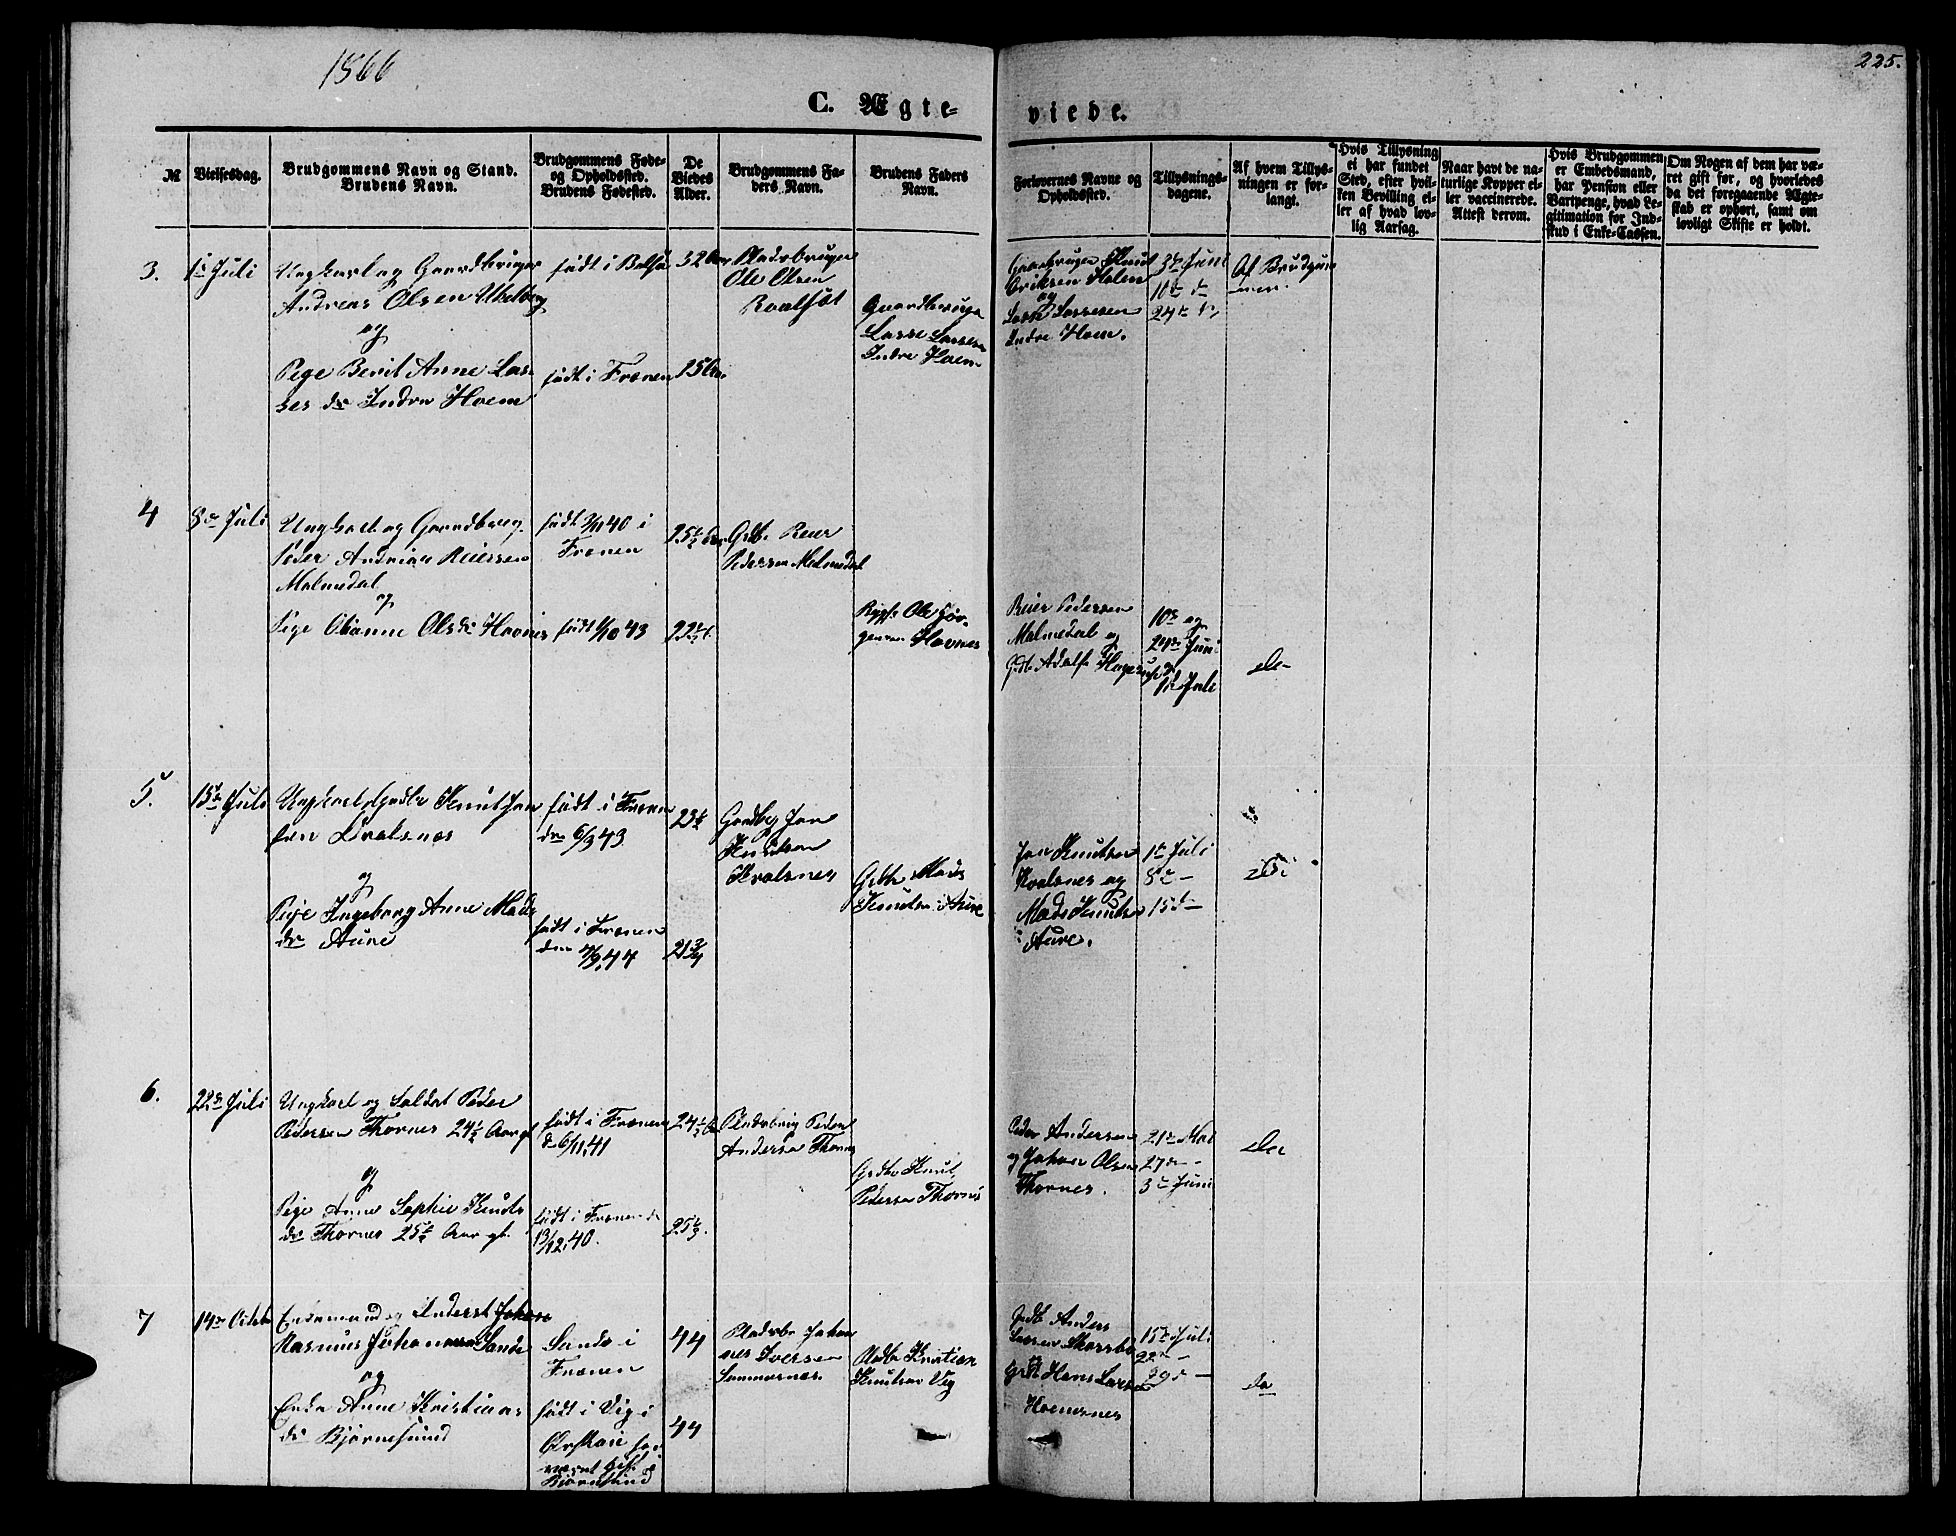 1866
225.
C. Ægte-
viede.
№
Vielsesdag.
Brudgommens Navn og Stand.
Brudens Navn.
Brudgommens Føde-
og Opholdssted.
Brudens Fødested.
De
Viedes
Alder.
Brudgommens Fa-
ders Navn.
Brudens Faders
Navn.
Forlovernes Navne og
Opholdssted.
Tillysnings-
dagene.
Af hvem Tillys-
ningen er for-
langt.
Hvis Tillysning
ei har fundet
Sted, efter hvil-
ken Bevilling el-
ler af hvad lov-
lig Aarsag.
Naar havt de na-
turlige Kopper el-
ler vaccinerede.
Attest derom.
Hvis Brudgommen
er Embedsmand,
har Pension eller
Vartpenge, hvad Le-
gitimation for Ind-
skud i Enke-Cassen.
Om Nogen af dem har væ-
ret gift før, og hvorledes
da det foregaaende Ægte-
skab er ophørt, samt om
lovligt Skifte er holdt.
3.
1ste Juli
Ungkarl og Gaardbruger
Andreas Olsen
og
Pige Berit Anne Las-
ses dr Indre Hoem
født i Bolsø
født i Frænen
32 Aar
25 Aar
Pladsbruger
Ole Olsen
Gaardbruger
Lasse Lassesen
Indre Hoem
Gaardbruger Knut
Eriksen Holen
og
Lasse Lassesen
Indre Hoem.
3de Juni
10de do
24de do
Af Brudgom-
men.
4
8de Juli
Ungkarl og Gaardbrug.
Peder Andreas Reiersen
Malmedal
og
Pige Olianne Olsdr Havnes
født 2/11 40 i
Frænen
født 1/10 43
25½ Aar
22
Grdb. Reier
Pedersen Malmedal
Ole Jør-
gensen Havnes
Reier Pedersen
Malmedal og
Grdb. Adolf
10de og
24de Juni
1ste Juli
do
5.
15de Juli
Ungkarl Grdbr Knut Jon
sen Kvalsnes
og
Pige Ingeborg Anne Mads
dr Aure
født i Frænen
den 6/3 43
født i Frænen
den 7/9 44
23
21¾
Gaardbg Jon
Knutsen
Kvalsnes
Grdbr Mads
Knutsen Aure
Jon Knutsen
Kvalsnes og
Mads Knutsen
Aure.
1ste Juli
8de -
15de -
6.
22de Juli
Ungkarl og Soldat Peder
Pedersen Thornes 24½ Aar gl
og
Pige Anne Sophie Knuts
dr Thornes 25 Aar gl.
født i Frænen
d. 6/11 41
født i Frænen d.
13/12 40.
24½
25
Pladsbrug Peder
Andersen Thornes
Grdbr Knut
Pedersen Thornes
Peder Andersen
og Johan Olsen
Thornes.
21de Mai
27de -
3de Juni
do
7
14de Octob
Enkemand og
Rasmus Johannesen Sande
og
Enke Anne Kristians
dr Bjørnesund
Sande i
Frænen
født i Vig i
Ørskoug
Bjørnesund
44
44
Pladsbr Johan
nes Iversen
Kristian
Knutsen Vig
Grdb Anders
Grdb Hans Larsen
15de Juli
22de -
29de -
do